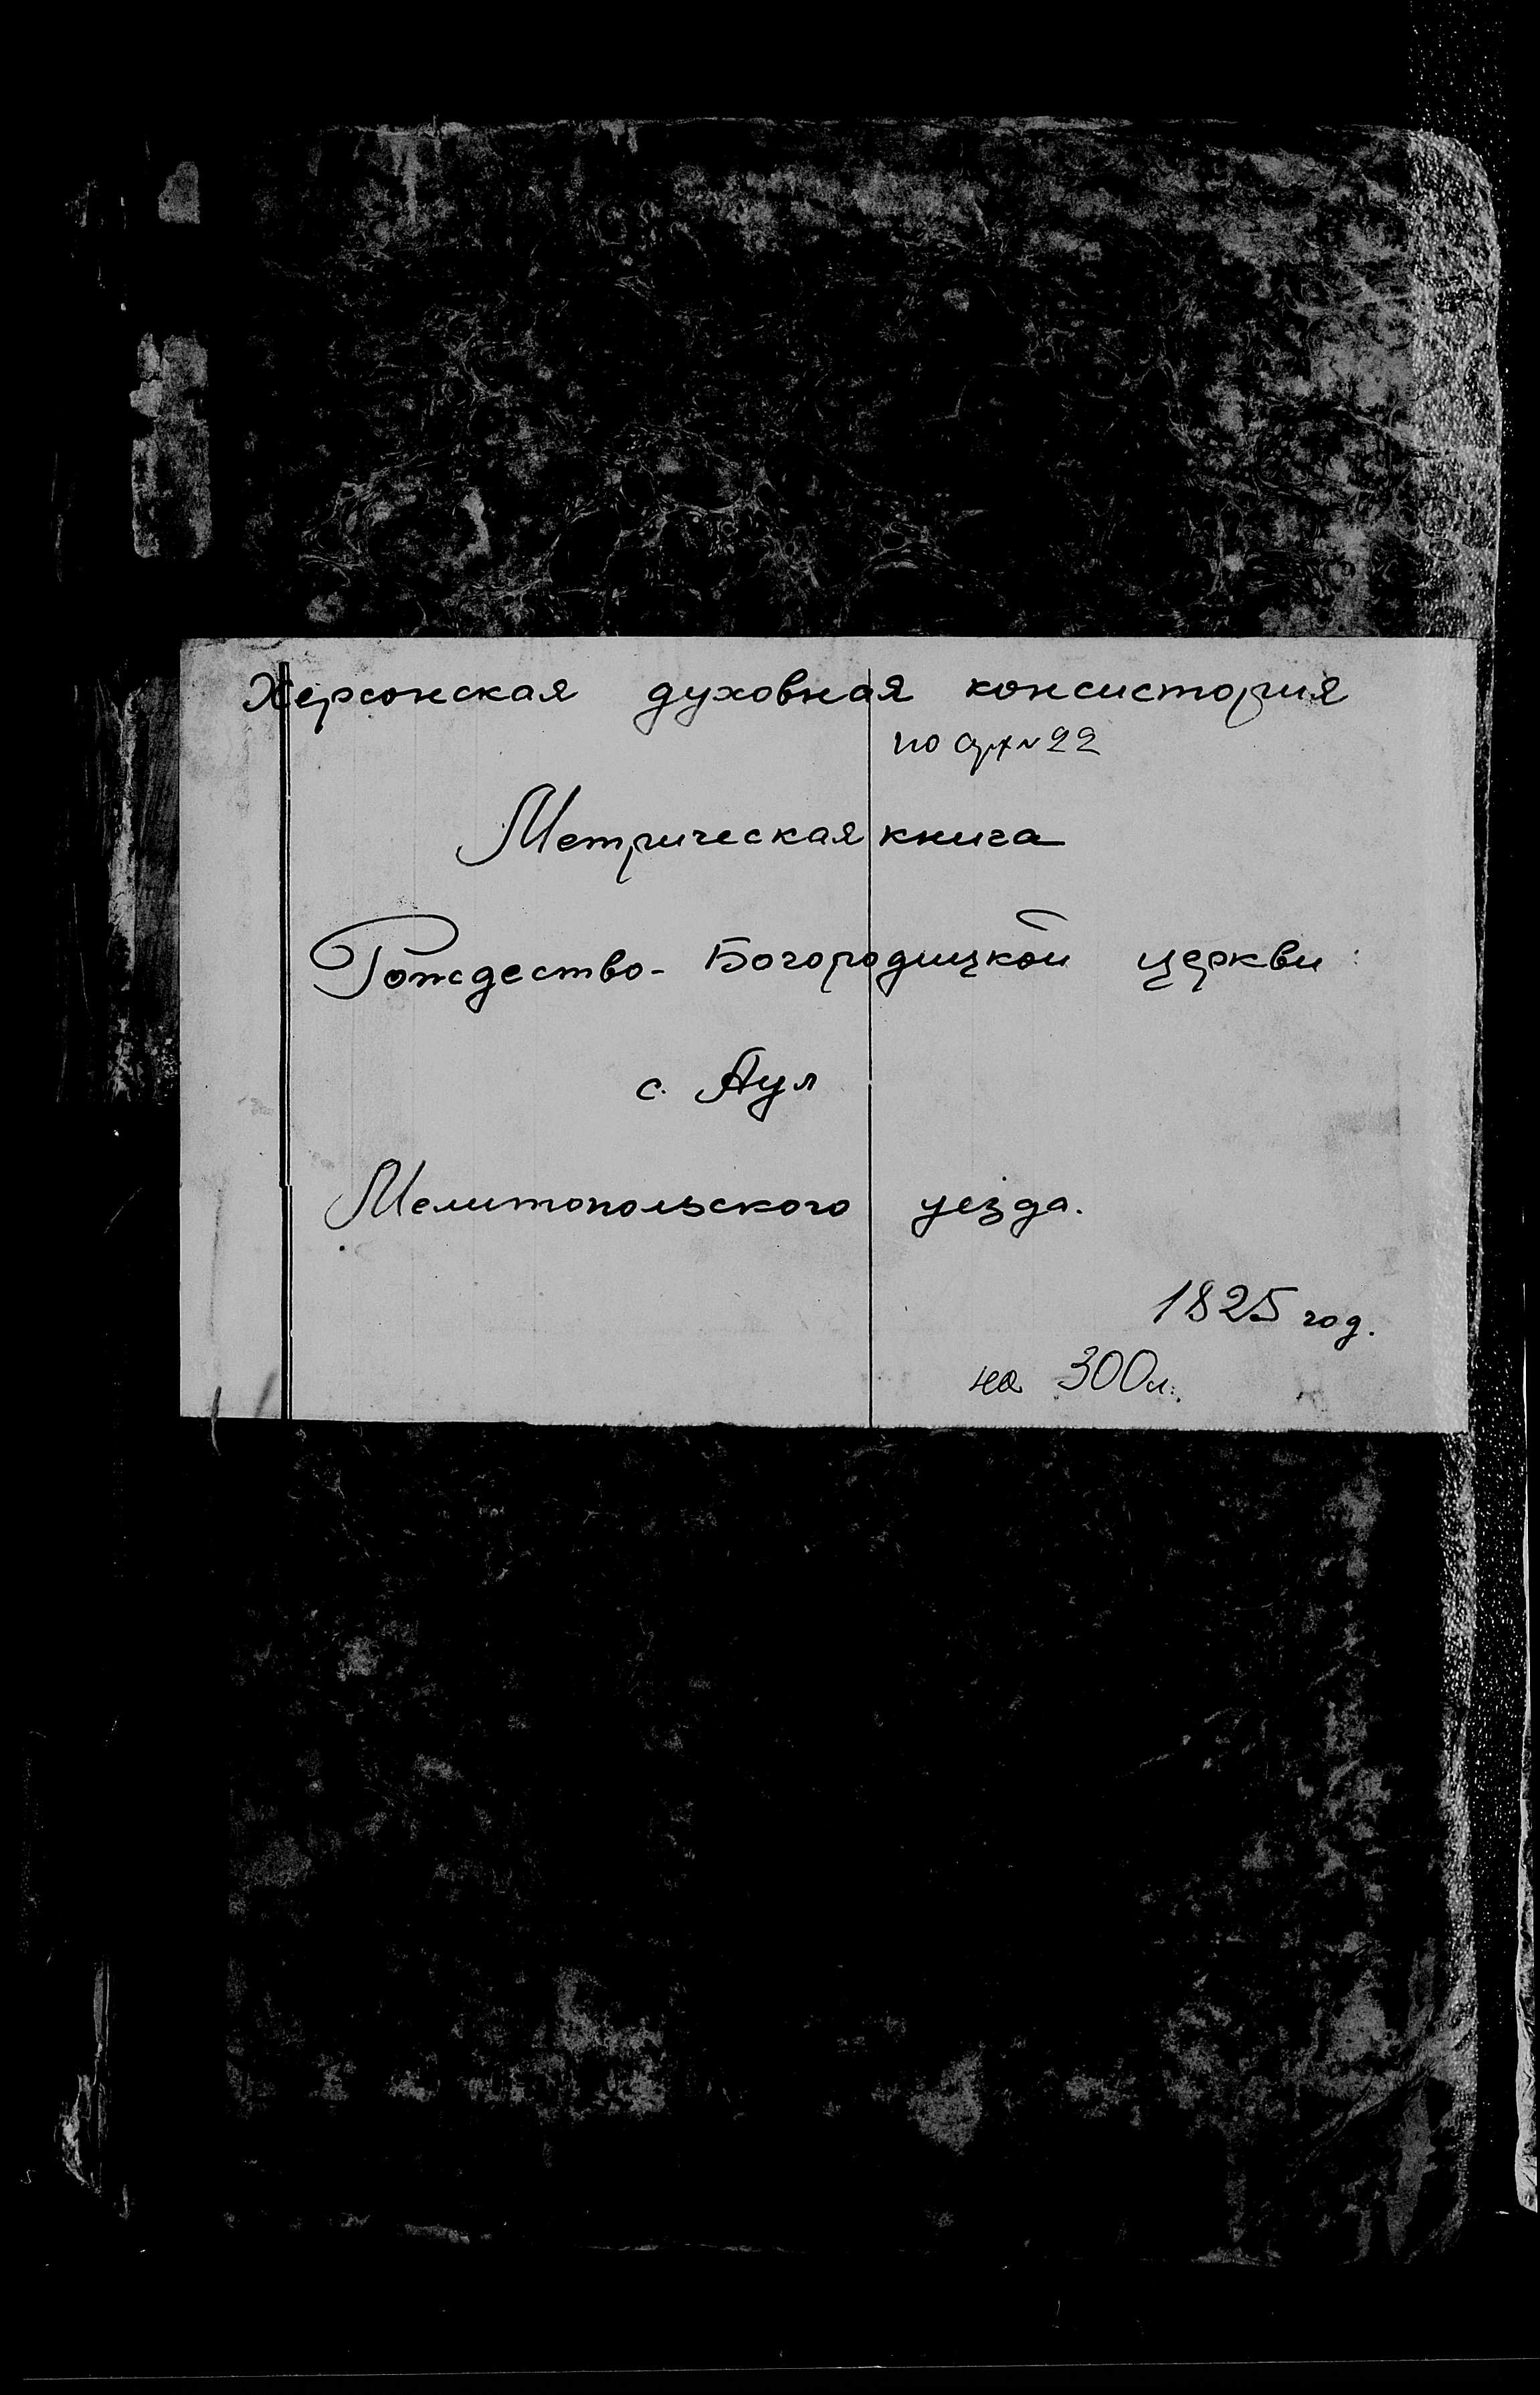 Херсонская духовная консистория
по арх № 22
Метрическая книга
Рождество-Богородицкой церкви
с. Аул
Мелитопольского уезда.
1825 год.
на 300 л.